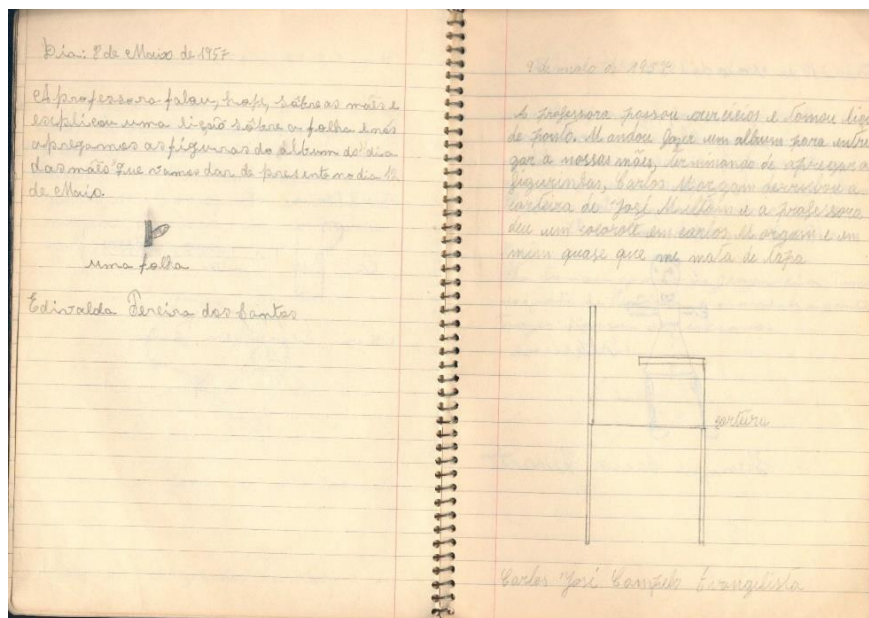 Dia: 8 de Maio de 1957
A professora falou, hoje, sôbre as mães e
explicou uma lição sôbre a folha e nós
apregamos as figuras do álbum do dia
das mães que vamos dar de presente no dia 12
de Maio.
uma folha
Edivalda Pereira dos Santos
9 de maio de 1957.
A professora passou exercícios e tomou lição
de ponto. Mandou fazer um album para entre
gar a nossas mães, terminando de apregar a
figurinhas, Carlos Morgam derrubou a
carteira de José Milton e a professora
deu um cocorote em carlos Morgam e em
mim quase que me mata de tapa
carteira
Carlos José Campelo Evangelista